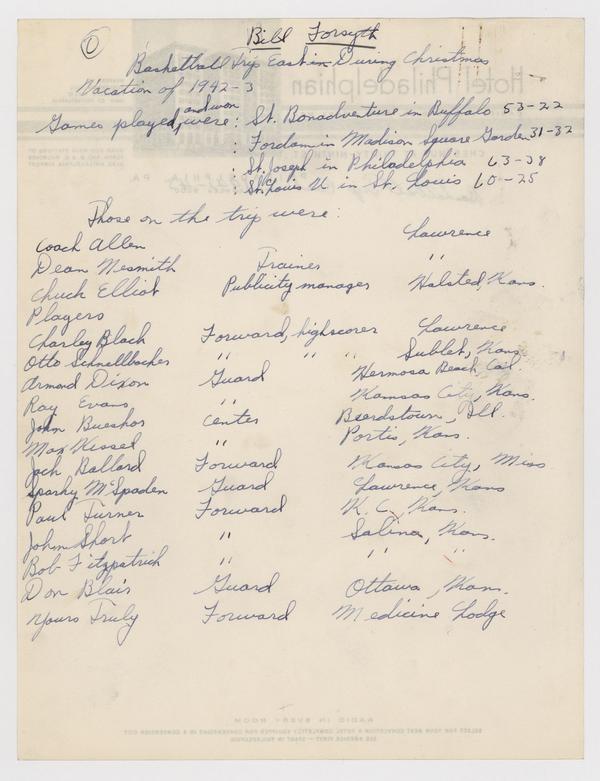 ① Bill Forsyth
Basketball Trip East in During Christmas
Vacation of 1942-3
Games played, and won were: St. Bonadventure in Buffalo 53-22
: Fordam in Madison Square Garden 31-32
: St. Joseph in Philadelphia 63-38
: St. Louis U. in St. Louis 60-25
Those on the trip were:
Coach Allen Lawrence
Dean Nesmith Trainer " "
Chuck Elliot Publicity manager Halsted, Kans.
Players
Charley Black Forward, high scorer Lawrence
Otto Schnellbacher " " " Sublet, Kans.
Armond Dixon Guard Hermosa Beach, Cal.
Ray Evans " Kansas City, Kans.
John Bueshor Center Beerdstown, Ill.
Max Kissel " Portis, Kans.
Jack Ballard Forward Kansas City, Miss
Sparky McSpaden Guard Lawrence, Kans
Paul Turner Forward K. C., Kans.
John Short " Salina, Kans.
Bob Fitzpatrick " " "
Don Blair Guard Ottawa, Kans.
Yours Truly Forward Medicine Lodge
RADIO IN EVERY ROOM